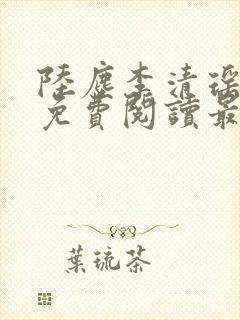 陸塵李清瑤
免費閱讀最
葉琉茶